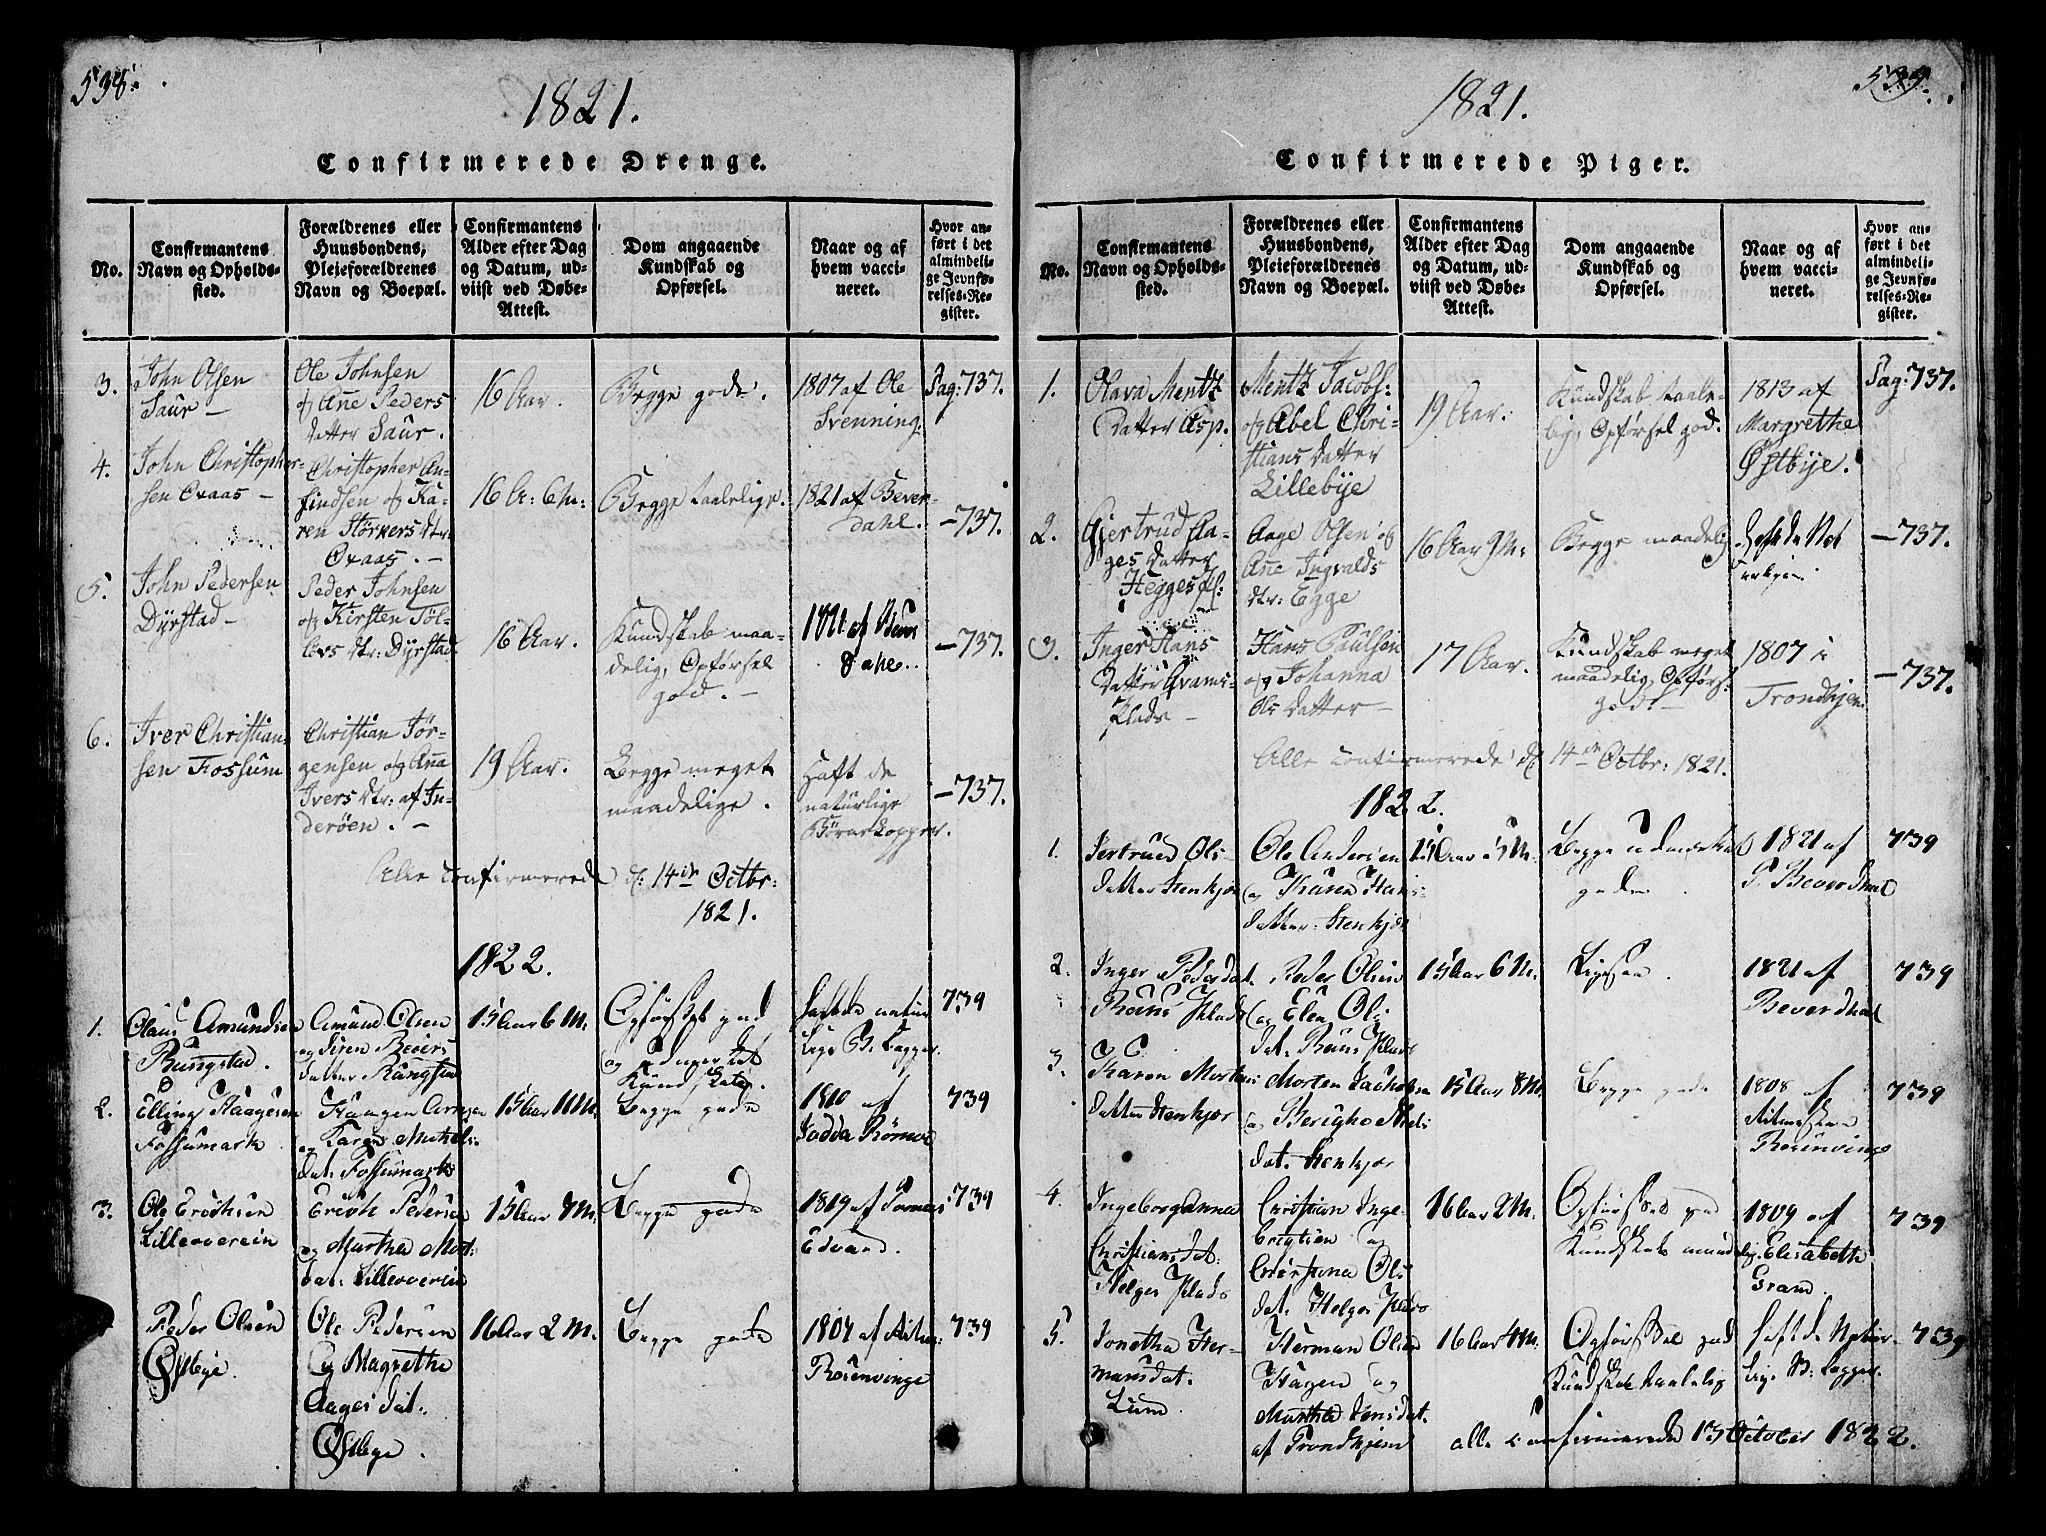 538.
1821.
Confirmerede Drenge.
No.
Confirmantens
Navn og Opholds-
sted.
Forældrenes eller
Huusbondens,
Pleieforældrenes
Navn og Boepæl.
Confirmantens
Alder efter Dag
og Datum, ud-
viist ved Døbe-
Attest.
Dom angaaende
Kundskab og
Opførsel.
Naar og af
hvem vacci-
neret.
Hvor an-
ført i det
almindeli-
ge Jevnfø-
relses-Re-
gister.
3.
John Olsen
Saur –
Ole Johnsen
og Ane Peders
Datter Saur.
16 Aar.
Begge gode.
1807 af Ole
Svenning.
Pag: 737.
4.
John Christopher-
sen Qvaas –
Christopher An-
findsen og Ka-
ren Størkers Dtr:
Qvaas. –
16 A: 6 M:
Begge taalelige.
1821 af Bever-
dahl.
– 737.
5.
John Pedersen
Dyrstad –
Peder Johnsen
og Kirsten Tøl-
Dtr: Dyrstad
16 Aar.
Kundskab maa-
delig, Opførsel
god. –
1821 af Bever
Dahl.
– 737.
6.
Iver Christian-
sen Fossum
Christian Jør-
gensen og Ana
Ivers Dtr: af In-
derøen. –
19 Aar.
Begge meget
maadelige.
Haft de
naturlige
Børnekopper.
– 737.
Alle confirmerede d: 14de Octbr:
1821.
1822.
1.
Olaus Amundsen
Rungstad.
Amund Olsen
og Siren Beiers
datter Rungstad
15 Aar 6 M.
Opførsel god
og
Kundskab.
havde natur
lige B. Kopper.
739
2.
Elling Haagensen
Fossumark
Haagen Arnsen
og Karen Mikkels
dat. Fossumark
15 Aar 11 M.
Begge gode
1810 af
Jadda Rømoe
739
3.
Ole Erichsen
Lilleoverein
Erich Pedersen
og Martha Mort:
dat: Lilleoverein
15 Aar 7 M.
Begge gode
1819 af
Edvard.
739
Peder Olsen
Østbye.
Ole Pedersen
og Magrethe
Aages Dat:
Østbye.
16 Aar 2 M.
Begge gode
1804 af
Rosenvinge
739
539.
1821.
Confirmerede Piger.
No.
Confirmantens
Navn og Opholds-
sted.
Forældrenes eller
Huusbondens,
Pleieforældrenes
Navn og Boepæl.
Confirmantens
Alder efter Dag
og Datum, ud-
viist ved Døbe-
Attest.
Dom angaaende
Kundskab og
Opførsel.
Naar og af
hvem vacci-
neret.
Hvor an-
ført i det
almindeli-
ge Jevnfø-
relses-Re-
gister.
1.
Olava Mentz
Datter Asp.
Mentz Jacobs:
og Abel Chri-
stians Datter
Lillebye
19 Aar.
Kundskab taale-
lig, Opførsel god.
1813 af
Margrethe
Østbye.
Pag: 737.
2.
Gjertrud Aa-
ges Datter
Hegges pl:
Aage Olsen og
Ane Ingvalds
Dtr: Egge
16 Aar 9 M:
Begge maadelig
Hafde Nat
– 737.
3.
Inger Hans
Datter Qvams-
plads –
Hans Paulsen
og Johanna
Ols Datter –
17 Aar.
Kundskab meget
maadelig, Opførs:
god. –
1807 i
Trondhjem
– 737.
Alle confirmerede d: 14de Octbr: 1821.
1822.
1.
Jertrued Ols
datter Stenkjær
Ole Andersen
og Karen Hans
datter Stenkjær
15 Aar 5 M.
Begge udmærket
gode.
1821 af
P. Beverdhal
739
2.
Inger Pedersdat.
Plads
Peder Olsen
og Elen Ols
dat. Plads
15 Aar 6 M.
Ligesaa.
1821 af
Beverdhal
739
3.
Karen Mortens
datter Stenkjær
Morten Jachobsen
og
dat. Stenkjær
15 Aar 8 M.
Begge gode
1808 af
Rosenvinge
739
4.
Ingeborganna
Christiansdat.
Helges Plads
Christian Inge-
brigtsen og
Christiana Ols
dat. Helges Plads
16 Aar 2 M.
Opførsel god
Kundskab maade
lig.
1809 af
Elisabeth
Gram.
739
5.
Jonetha Her-
mansdat.
Lund.
Herman Olsen
Hagen og
Martha Jensdat.
af Trondhjem
16 Aar 4 M.
Opførssel god
Kundskab taalelig
haft de Natur
lige B. Kopper.
739
alle confirmerede 13 October 1822.